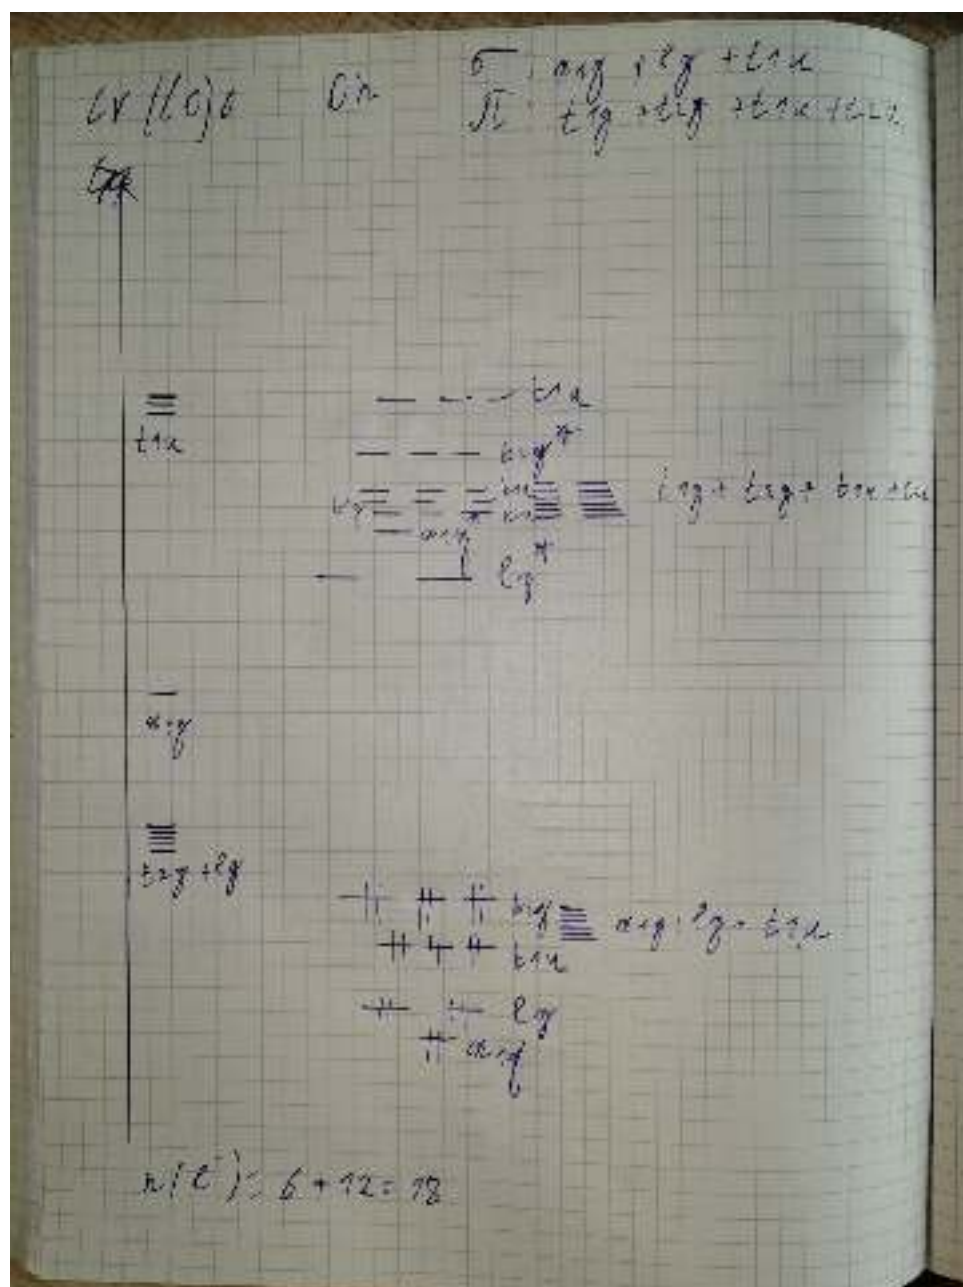 Cr(CO)6 Oh σ: a1g + eg + t1u
π: t1g + t2g + t1u + t2u
t1u
t1u
t2g*
t1g + t2g + t1u + t2u
a1g*
eg*
a1g
t2g + eg
t2g a1g + eg + t1u
t1u
eg
a1g
n(e-) = 6 + 12 = 18